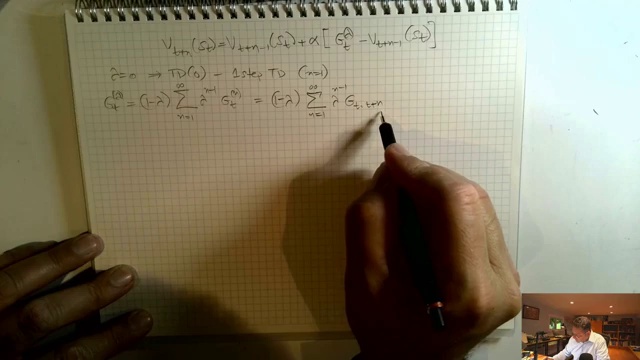 V_{t+n}(S_t) = V_{t+n-1}(S_t) + α[G_t^λ − V_{t+n-1}(S_t)]
λ=0 ⇒ TD(0) − 1step TD (n=1)
= (1−λ) ∑_{n=1}^∞ λ^{n-1} G_t^{(n)} = (1−λ) ∑_{n=1}^∞ λ^{n-1} G_{t:t+n}